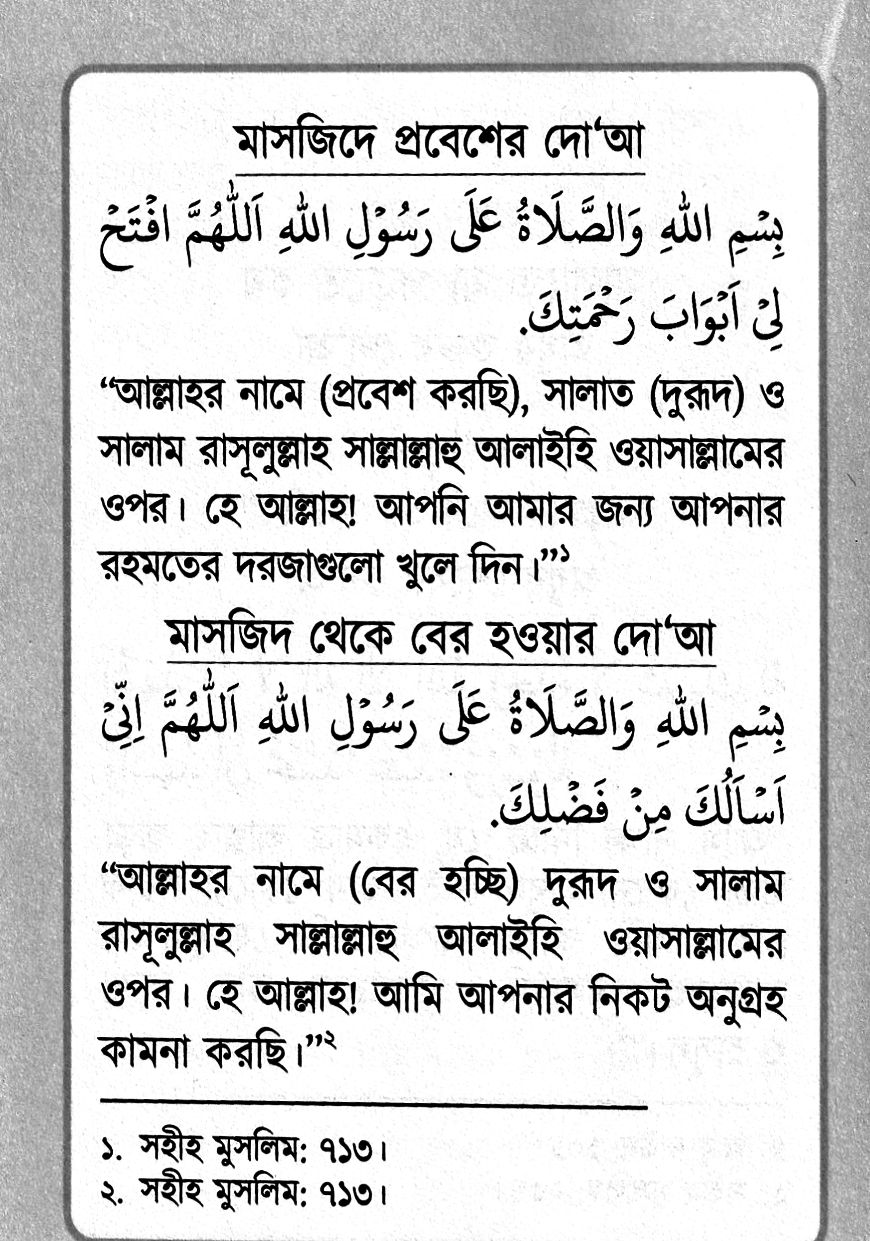 মাসজিদে প্রবেশের দো‘আ
بِسْمِ اللهِ وَالصَّلَاةُ عَلَى رَسُوْلِ اللهِ اَللّٰهُمَّ افْتَحْ
لِيْ اَبْوَابَ رَحْمَتِكَ.
“আল্লাহর নামে (প্রবেশ করছি), সালাত (দুরূদ) ও
সালাম রাসূলুল্লাহ সাল্লাল্লাহু আলাইহি ওয়াসাল্লামের
ওপর। হে আল্লাহ! আপনি আমার জন্য আপনার
রহমতের দরজাগুলো খুলে দিন।”১
মাসজিদ থেকে বের হওয়ার দো‘আ
بِسْمِ اللهِ وَالصَّلَاةُ عَلَى رَسُوْلِ اللهِ اَللّٰهُمَّ اِنِّيْ
اَسْاَلُكَ مِنْ فَضْلِكَ.
“আল্লাহর নামে (বের হচ্ছি) দুরূদ ও সালাম
রাসূলুল্লাহ সাল্লাল্লাহু আলাইহি ওয়াসাল্লামের
ওপর। হে আল্লাহ! আমি আপনার নিকট অনুগ্রহ
কামনা করছি।”২
১. সহীহ মুসলিম: ৭১৩।
২. সহীহ মুসলিম: ৭১৩।